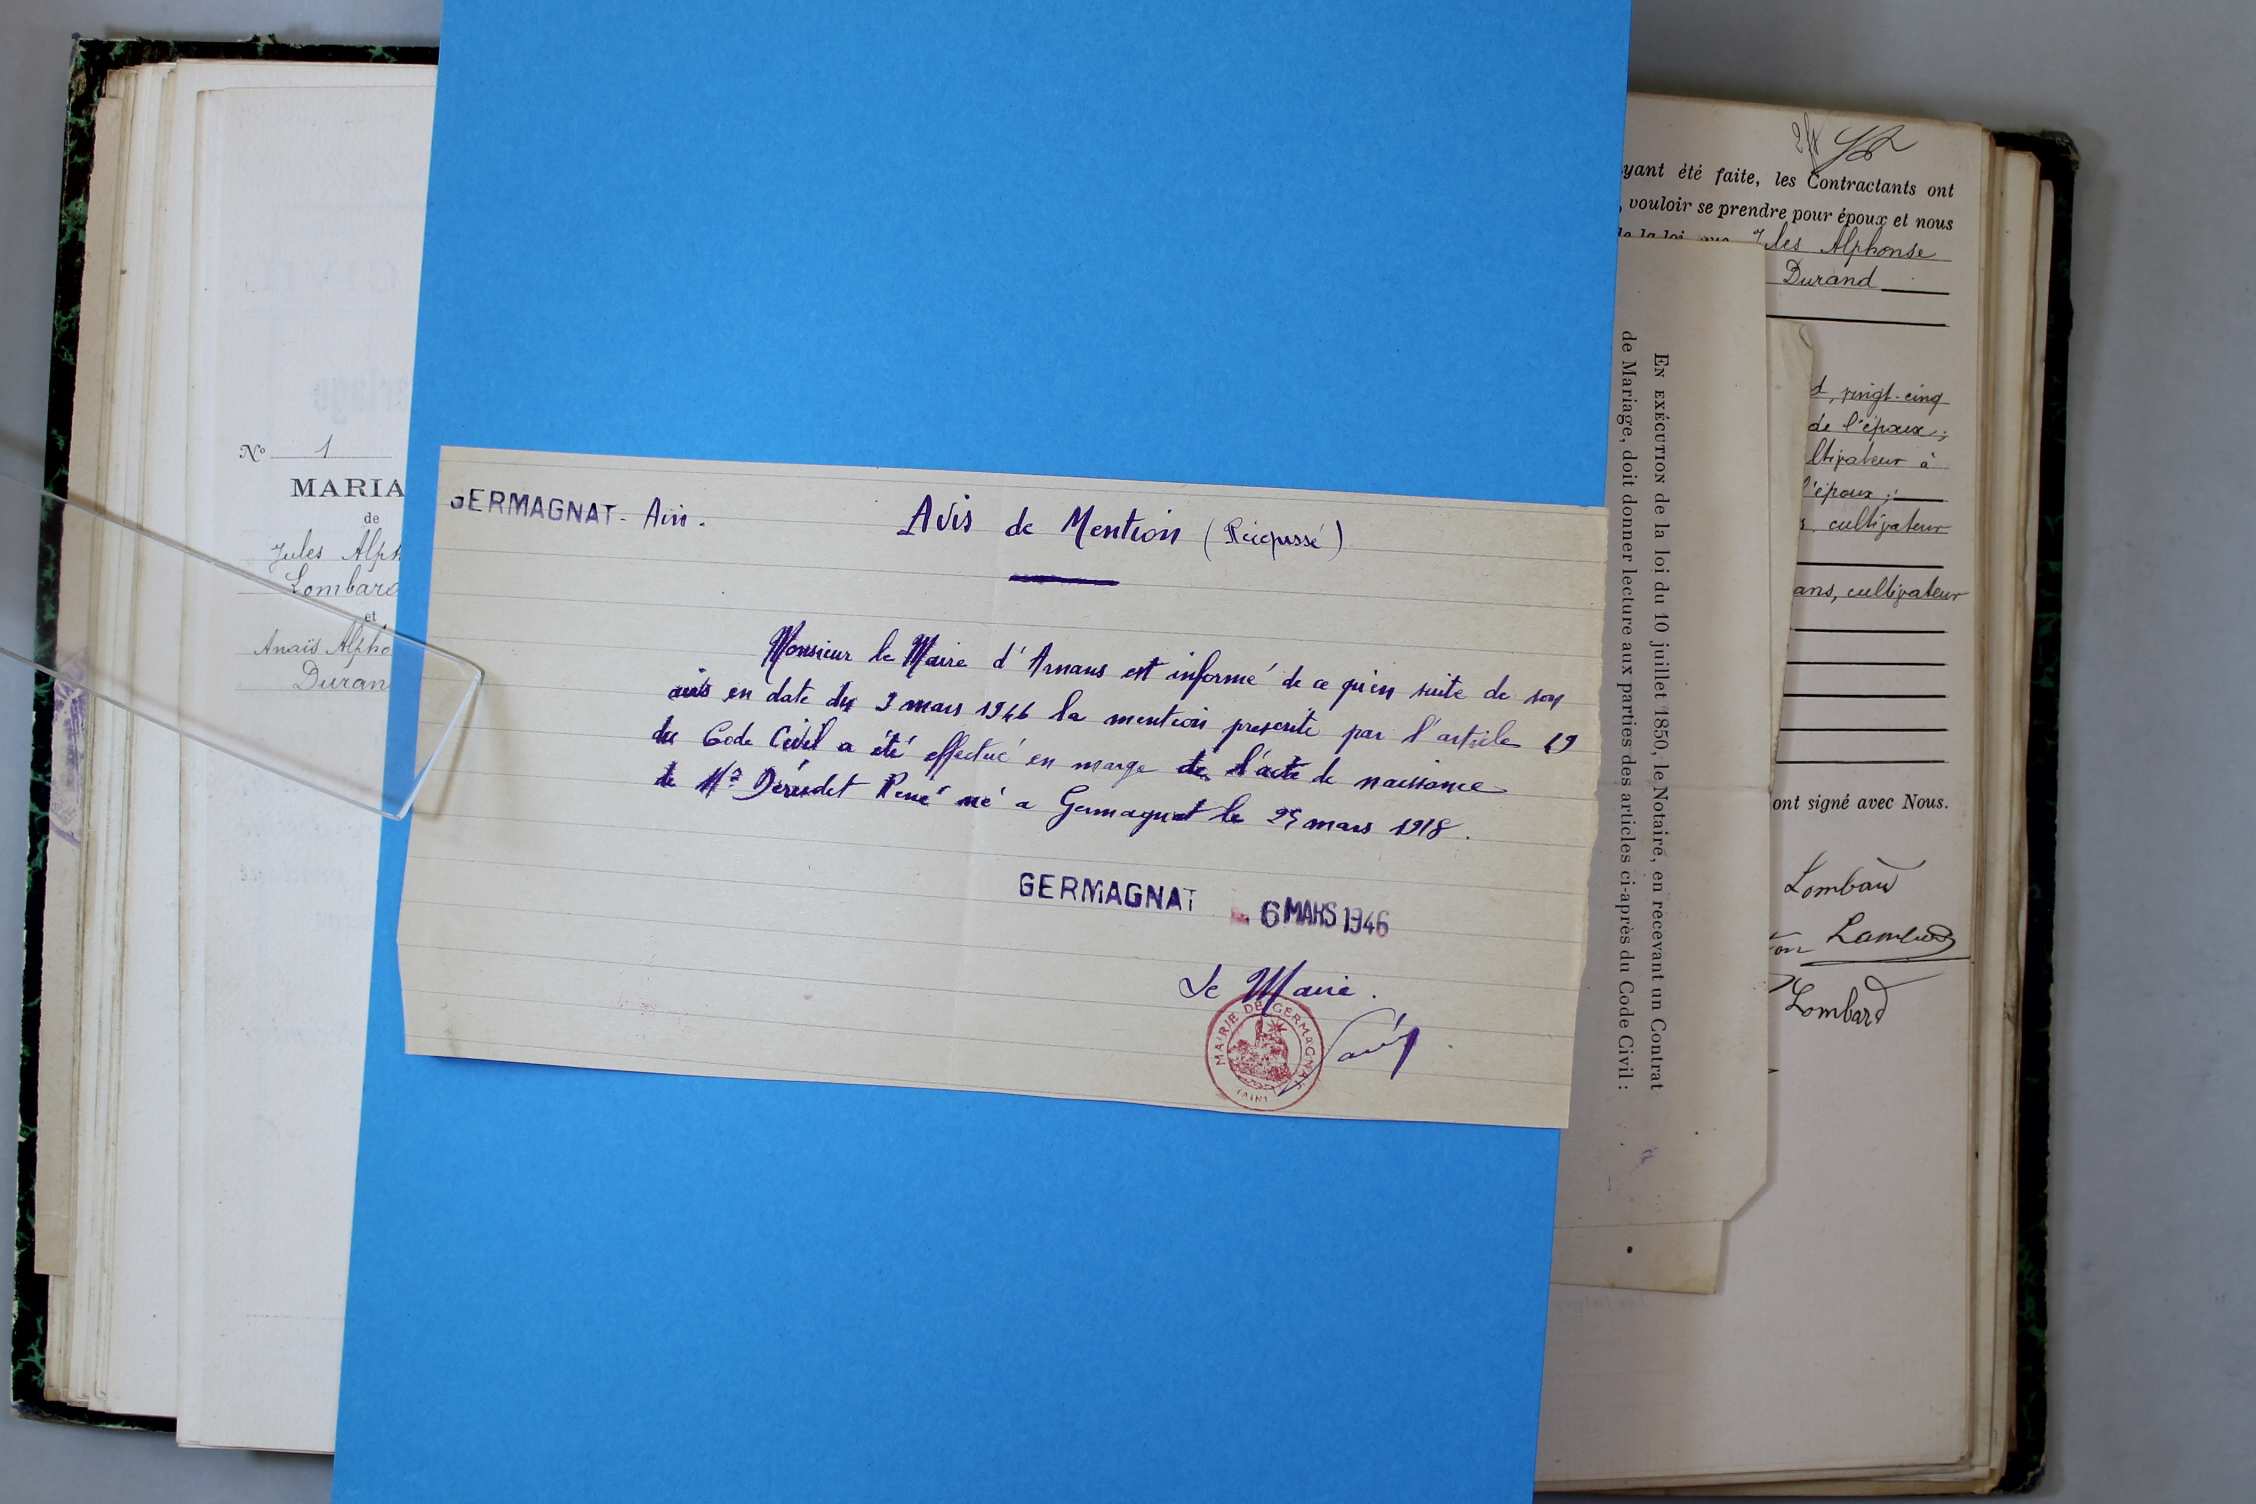 N° 1
MARIA
de
Jules Alph
Lombard
et
Anaïs Alpho
Duran
GERMAGNAT - Ain.
Avis de Mention (Récépissé)
Monsieur le Maire d'Arnans est informé de ce qu'en suite de son
avis en date du 3 mars 1946 la mention prescrite par l'article 49
du Code Civil a été effectué en marge de l'acte de naissance
de Mr René né a Germagnat le 25 mars 1918.
GERMAGNAT 6 MARS 1946
Le Maire.
MAIRIE DE GERMAGNAT
(AIN)
yant été faite, les Contractants ont
, vouloir se prendre pour époux et nous
de la loi, que Jules Alphonse
Durand
d, vingt-cinq
de l'époux;
ltivateur à
l'époux;
s, cultivateur
ans, cultivateur
ont signé avec Nous.
Lombard
Lombard
Lombard
EN EXÉCUTION de la loi du 10 juillet 1850, le Notaire, en recevant un Contrat
de Mariage, doit donner lecture aux parties des articles ci-après du Code Civil :